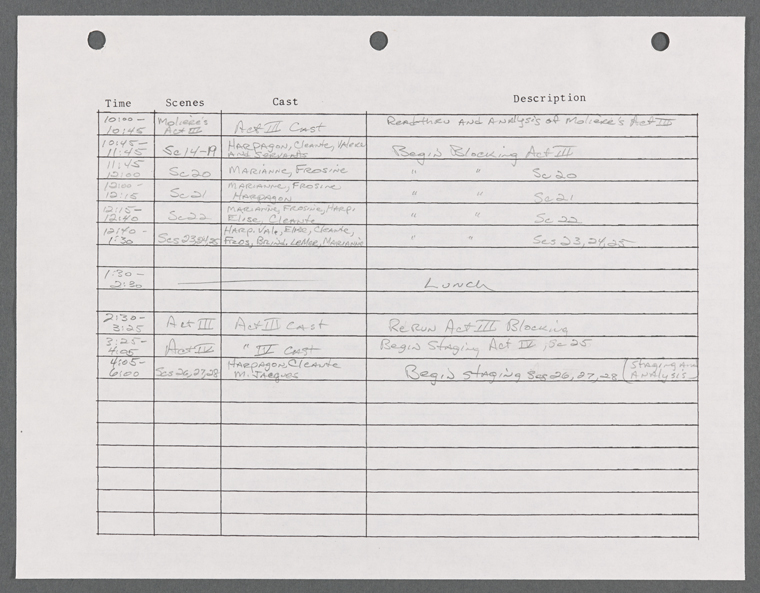 Time Scenes Cast Description
10:00- Moliere's Readthru and Analysis of Moliere's Act III
10:45 Act III Act III Cast
10:45- Harpagon, Cleante, Valere
11:45 Sc 14-19 and Servants Begin Blocking Act III
11:45
12:00 Sc 20 Marianne, Frosine " " Sc 20
12:00- Marianne, Frosine
12:15 Sc 21 Harpagon " " Sc 21
12:15- Marianne, Frosine, Harp.
12:40 Sc 22 Elise, Cleante " " Sc 22
12:40- Harp. Val., Elise, Cleante,
1:30 Scs 23,24,25 Fros, Brind, LaMer, Marianne " " Scs 23, 24, 25
1:30-
2:30 Lunch
2:30-
3:25 Act III Act III Cast ReRun Act III Blocking
3:25-
4:05 Act IV " IV Cast Begin Staging Act IV, Sc 25
4:05- Harpagon, Cleante (Staging and
6:00 Scs 26,27,28 M. Jacques Begin Staging Scs 26, 27, 28 Analysis)